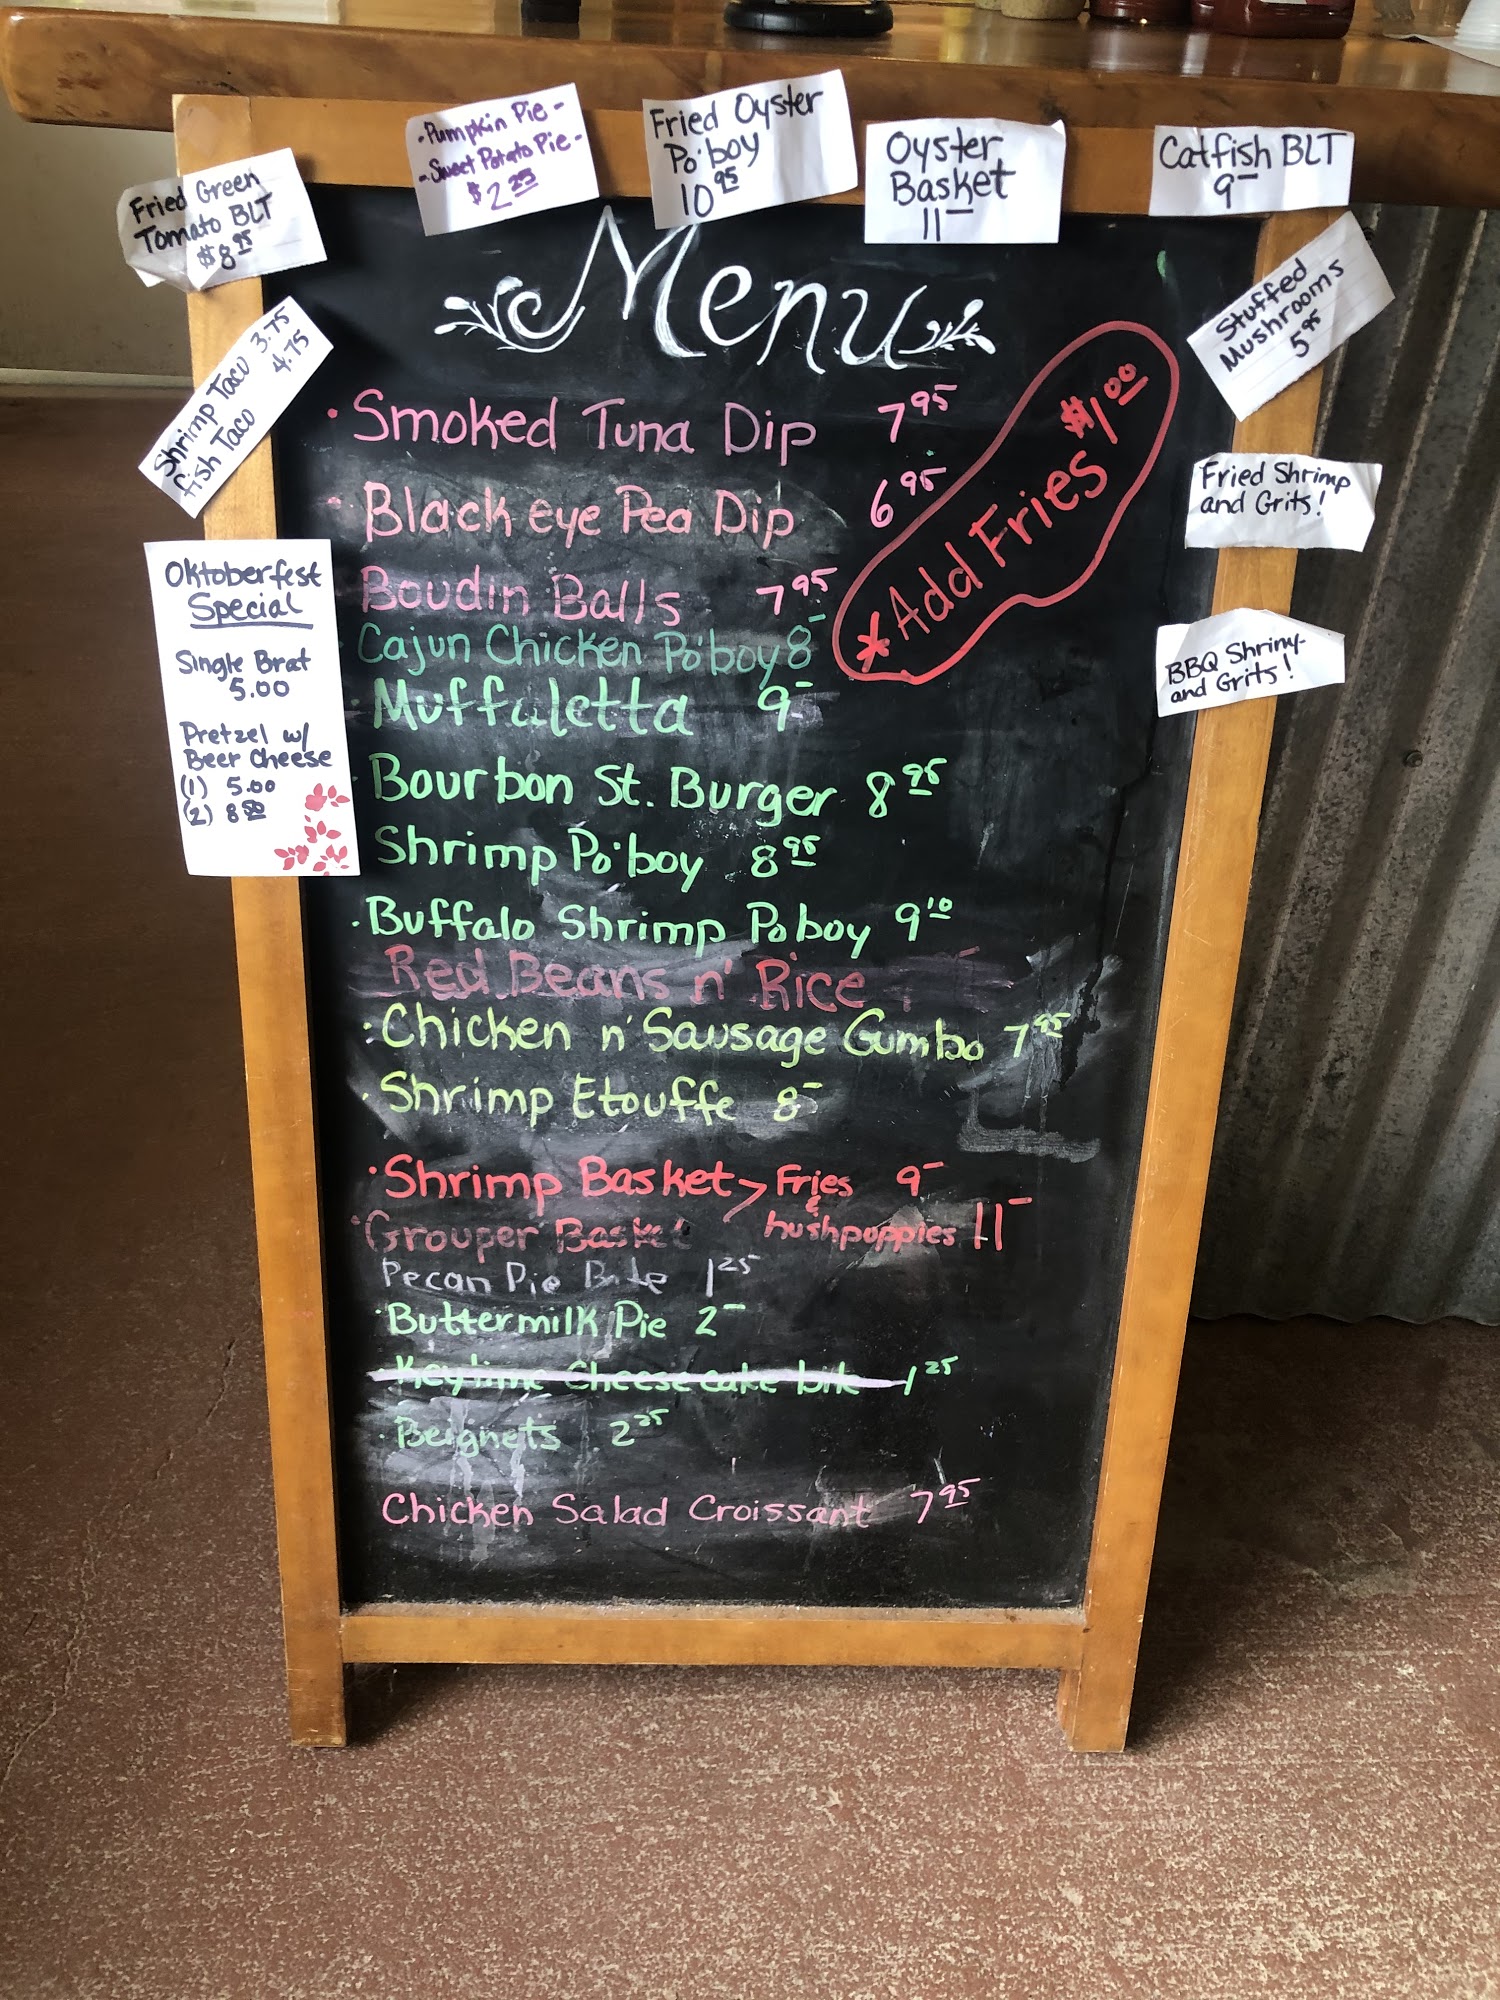 - Pumpkin Pie -
- Sweet Potato Pie -
$2.25
Fried Oyster
Po'boy
10 95
Oyster
Basket
11-
Catfish BLT
9-
Fried Green
Tomato BLT
$8 95
Shrimp Taco 3.75
fish Taco 4.75
Stuffed
Mushrooms
5 95
Fried Shrimp
and Grits!
BBQ Shrimp
and Grits!
Oktoberfest
Special
Single Brat
5.00
Pretzel w/
Beer Cheese
(1) 5.00
(2) 8 50
Menu
* Add Fries $1 00
• Smoked Tuna Dip 7 95
• Black eye Pea Dip 6 95
Boudin Balls 7 95
• Cajun Chicken Po'boy 8-
• Muffuletta 9-
• Bourbon St. Burger 8 95
Shrimp Po'boy 8 95
• Buffalo Shrimp Poboy 9 10
Red Beans n' Rice
• Chicken n' Sausage Gumbo 7 95
• Shrimp Etouffe 8-
• Shrimp Basket > Fries 9-
&
• Grouper Basket hushpuppies 11-
Pecan Pie Bite 1 25
• Buttermilk Pie 2-
• Keylime Cheese cake bite 1 25
• Beignets 2 25
Chicken Salad Croissant 7 95